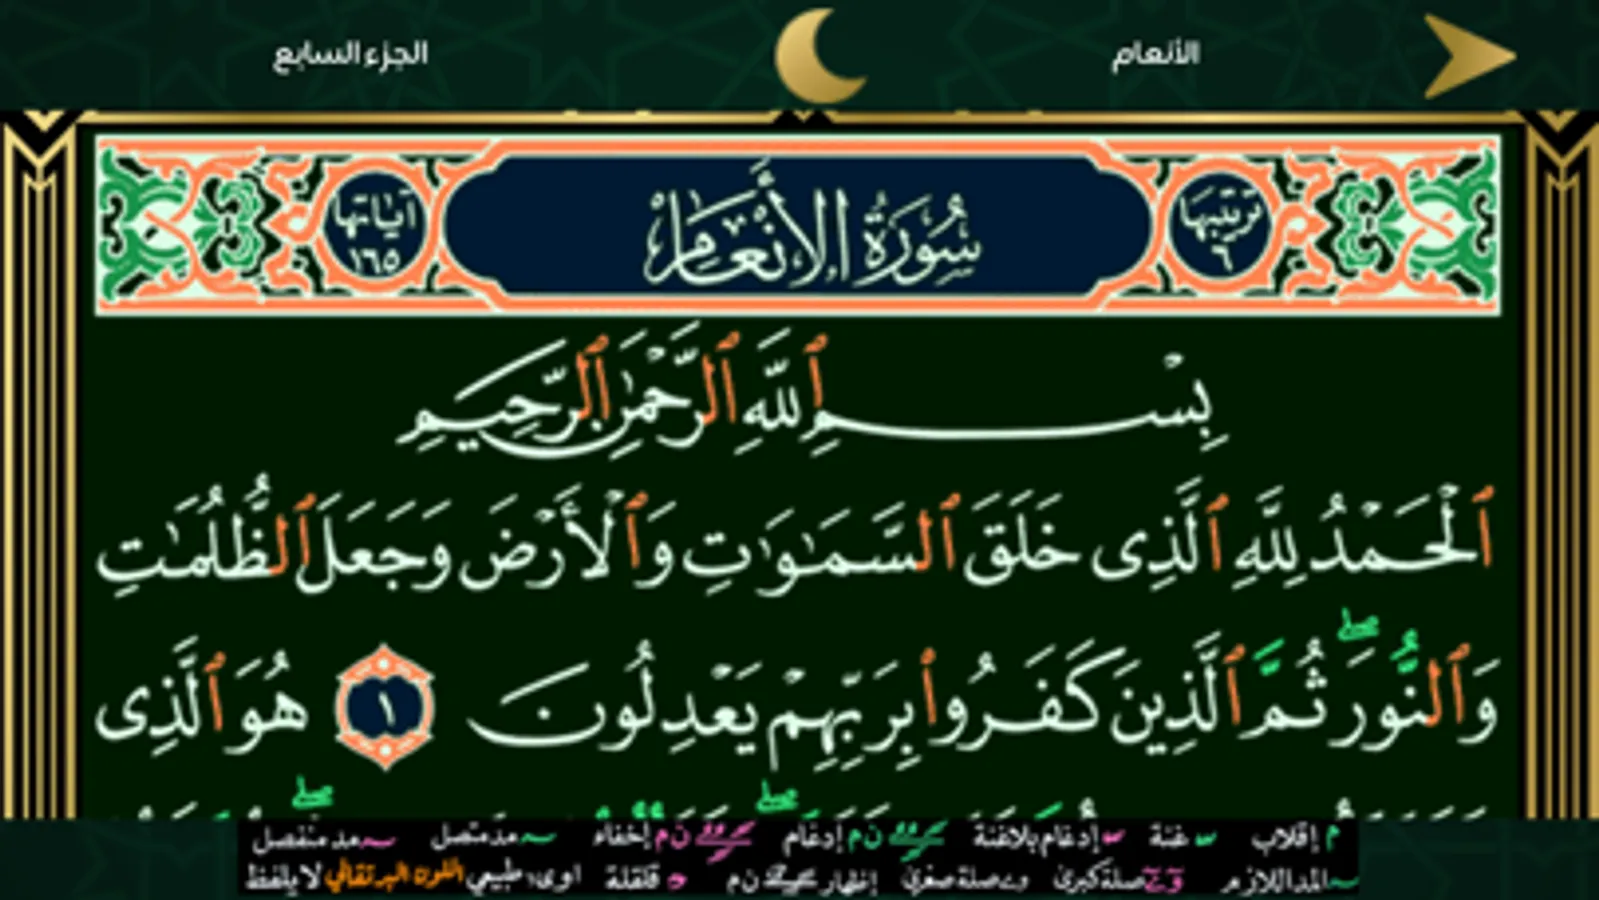 الأنعام
الجزء السابع
ترتيبها ٦
سُورَةُ الأَنْعَامِ
آياتها ١٦٥
بِسْمِ ٱللَّهِ ٱلرَّحْمَٰنِ ٱلرَّحِيمِ
ٱلْحَمْدُ لِلَّهِ ٱلَّذِى خَلَقَ ٱلسَّمَٰوَٰتِ وَٱلْأَرْضَ وَجَعَلَ ٱلظُّلُمَٰتِ
وَٱلنُّورَ ۖ ثُمَّ ٱلَّذِينَ كَفَرُوا۟ بِرَبِّهِمْ يَعْدِلُونَ ١ هُوَ ٱلَّذِى
م إقلاب غنة إدغام بلاغنة ن م إدغام ن م إخفاء مد متصل مد منفصل
المد اللازم صلة كبرى صلة صغرى إظهار ن م قلقلة اوى طبيعي اللون البرتقالي لا يلفظ